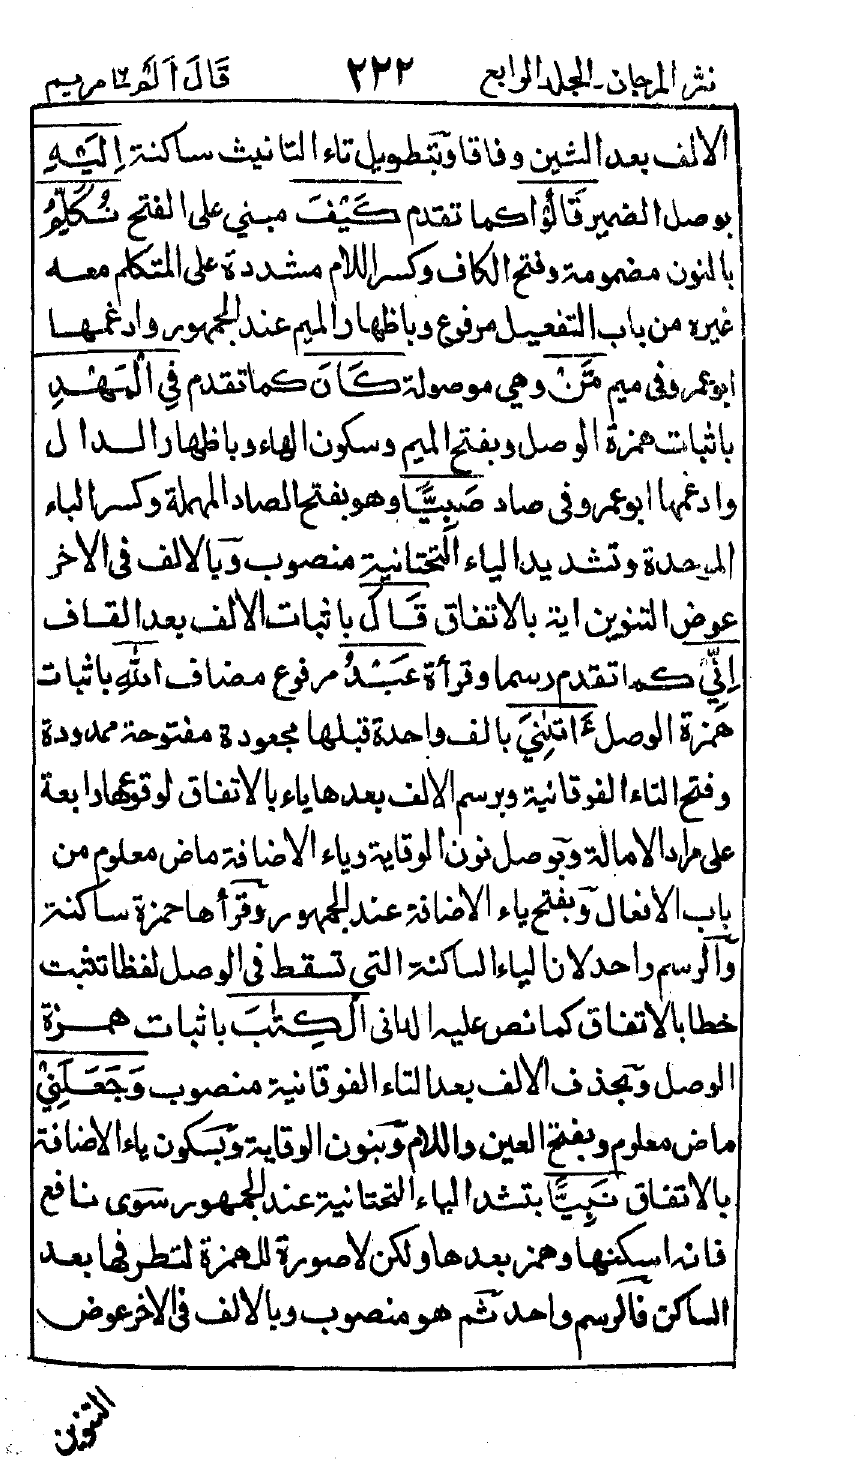 نثر المرجان ـ المجلد الرابع ٢٢٢ قَالَ اَلَمْ ١٦ مريم
الالف بعد الشين وفاقا وبتطويل تاء التانيث ساكنة اِلَيْهِ
بوصل الضمير قَالُوْا كما تقدم كَيْفَ مبني على الفتح نُكَلِّمُ
بالنون مضمومة وفتح الكاف وكسر اللام مشددة على المتكلم معه
غيره من باب التفعيل مرفوع وباظهار الميم عند الجمهور وادغمها
ابو عمرو في ميم مَنْ وهي موصولة كَانَ كما تقدم فِي الْمَهْدِ
باثبات همزة الوصل وبفتح الميم وسكون الهاء وباظهار الدال
وادغمها ابو عمرو في صاد صَبِيًّا وهو بفتح الصاد المهملة وكسر الباء
الموحدة وتشديد الياء التحتانية منصوب وبالالف في الاخر
عوض التنوين اية بالاتفاق قَالَ باثبات الالف بعد القاف
اِنِّيْ كما تقدم رسما وقرأة عَبْدُ مرفوع مضاف اللهِ باثبات
همزة الوصل ءَاتٰنِيَ بالف واحدة قبلها مجعودة مفتوحة ممدودة
وفتح التاء الفوقانية وبرسم الالف بعدها ياء بالاتفاق لوقوعها رابعة
على مراد الامالة وبوصل نون الوقاية وياء الاضافة ماض معلوم من
باب الافعال وبفتح ياء الاضافة عند الجمهور وقرأها حمزة ساكنة
والرسم واحد لان الياء الساكنة التي تسقط في الوصل لفظا تثبت
خطا بالاتفاق كما نص عليه الداني الْكِتٰبَ باثبات همزة
الوصل وبحذف الالف بعد التاء الفوقانية منصوب وَجَعَلَنِيْ
ماض معلوم وبفتح العين واللام وبنون الوقاية وبسكون ياء الاضافة
بالاتفاق نَبِيًّا بتشد الياء التحتانية عند الجمهور سوى نافع
فانه اسكنها وهمز بعدها ولكن لا صورة للهمزة لتطرفها بعد
الساكن فالرسم واحد ثم هو منصوب وبالالف في الاخر عوض
التنوين